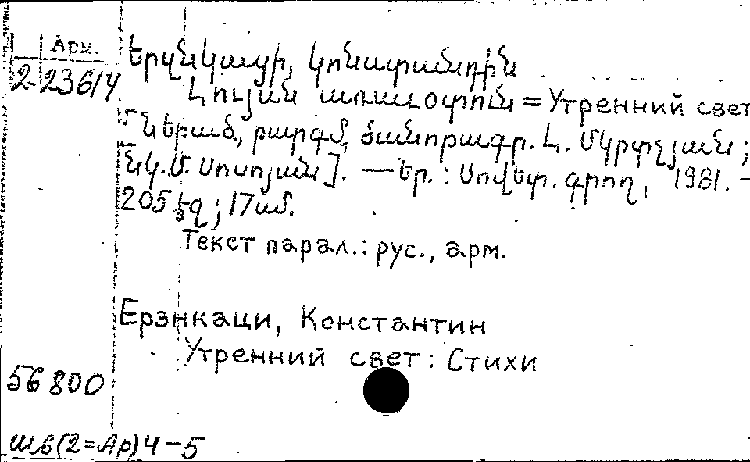 Арм.
2-23614
Երզնկացի, Կոնստանդին
Լույսն առաւօտուն = Утренний свет
[Ներած, թարգմ, ծանոթագր. Լ. Մկրտչյան;
նկ. Մ. Սոսոյան]. — Եր.: Սովետ. գրող, 1981. –
205 էջ; 17սմ.
Текст парал.: рус., арм.
Ерзнкаци, Константин
Утренний свет: Стихи
56800
шб(2=Ар)4-5